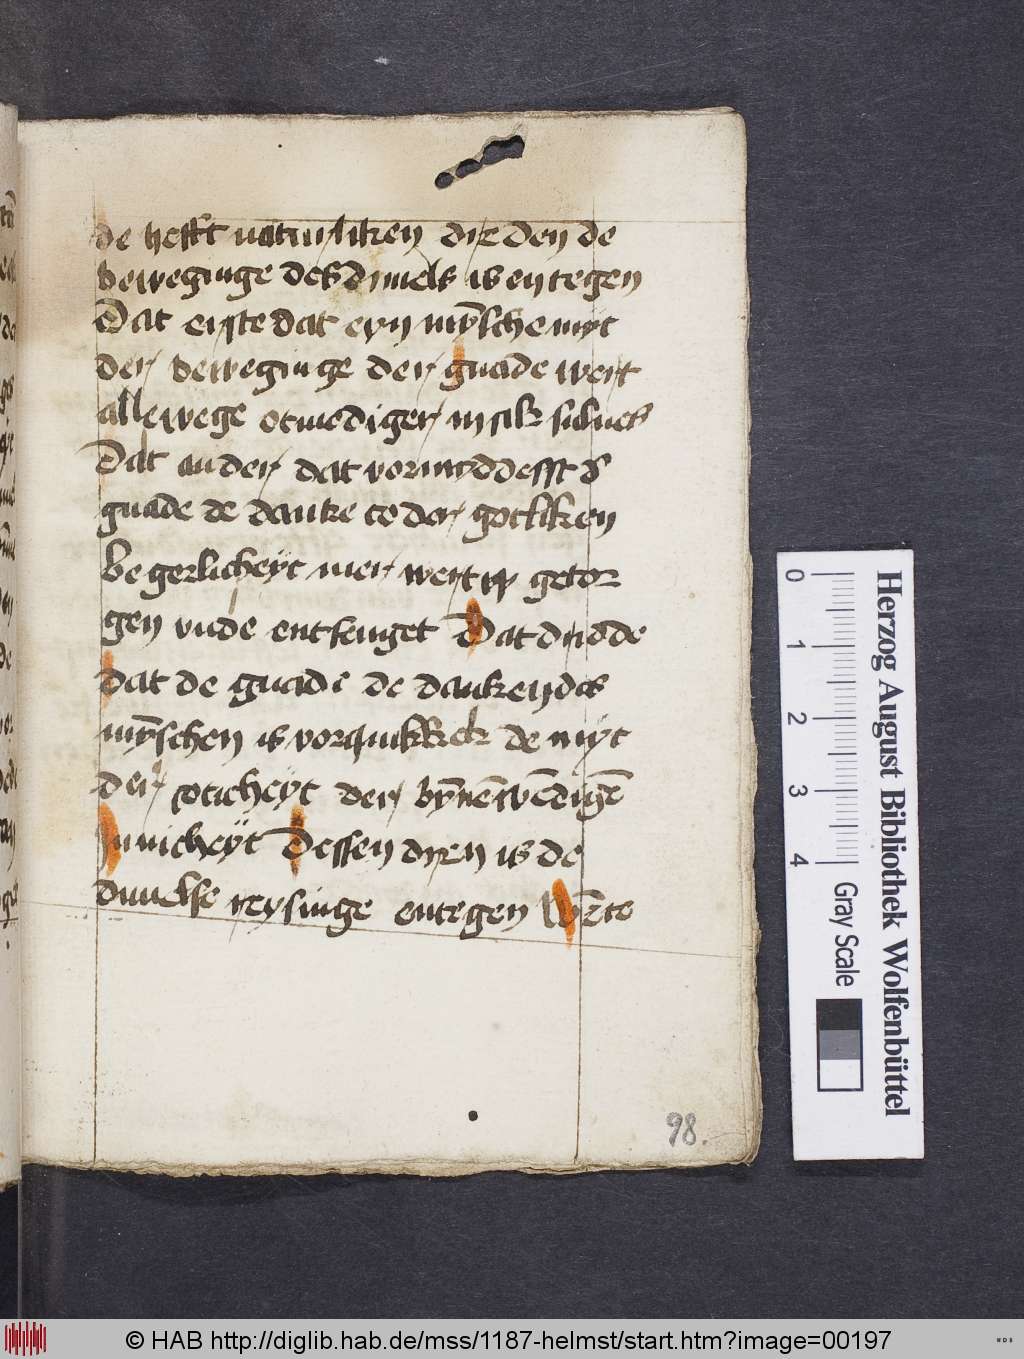 de hefft naturliken dre den de
beweginge des duuels is entegen
Dat erste dat eyn mȳsche myt
der beweginge der gnade wert
allewege otmodiger in sik sulues
Dat ander dat vormyddesst d'
gnade de danke to der gotliken
begerlicheyt mer wert vp getor
gen vnde entfenget Dat drudde
dat de gnade de danken des
mȳschen is vorquikkek de myt
der soticheyt der bȳnēwēdigē
Innicheyt Dessen dren is de
duuelse reysinge entegen
98.
Herzog August Bibliothek Wolfenbüttel
0 1 2 3 4
Gray Scale
© HAB http://diglib.hab.de/mss/1187-helmst/start.htm?image=00197
WDB